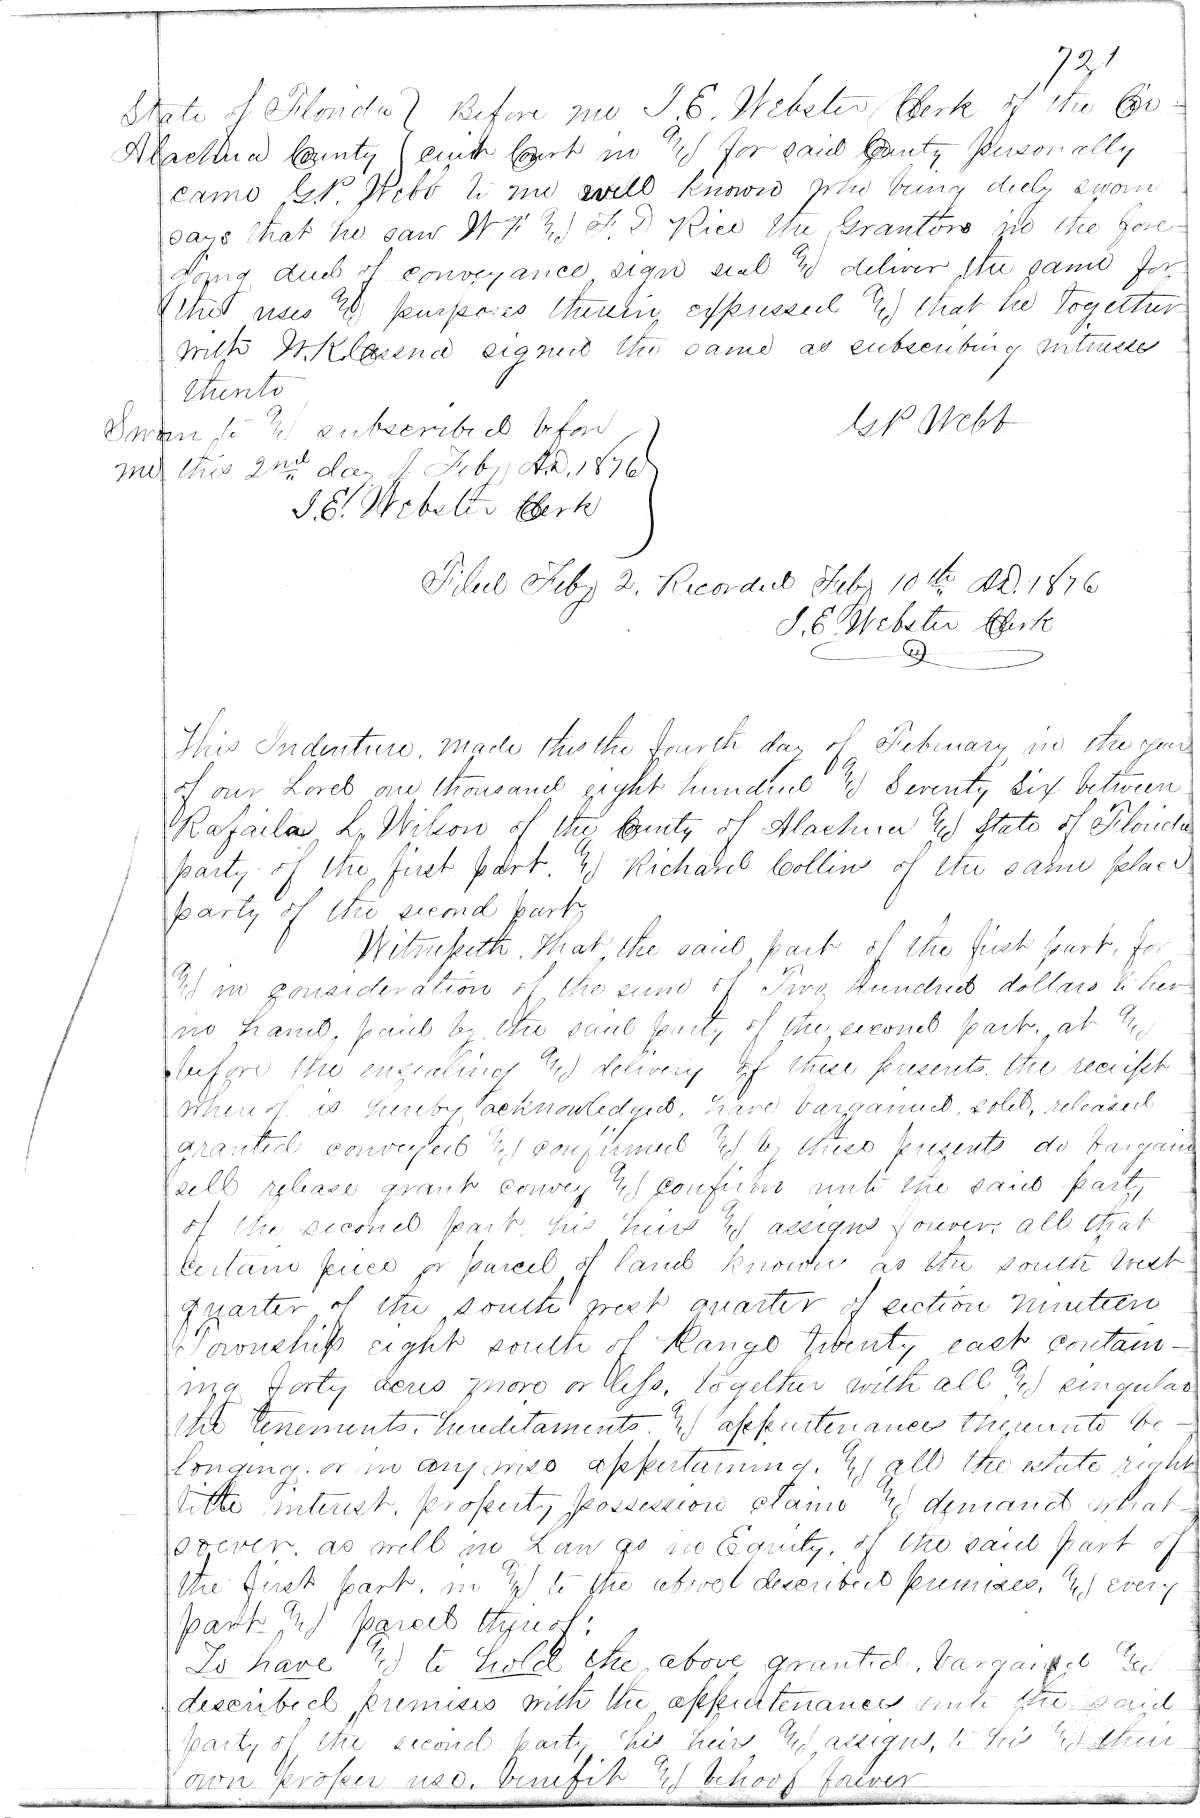 721
State of Florida } Before me J. E. Webster Clerk of the Cir-
Alachua County } cuit Court in & for said County personally
came G P. Webb to me well known who being duly sworn
says that he saw W F & F. D Rice the Grantors in the fore-
going deed of conveyance sign seal & deliver the same for
the uses & purposes therein expressed & that he together
with W. K. Cessna signed the same as subscribing witnesses
thereto
G P Webb
Sworn to & subscribed before
me this 2nd day of Feby A.D. 1876
J. E. Webster Clerk
Filed Feby 2. Recorded Feby 10th A.D. 1876
J. E. Webster Clerk
This Indenture. made this the fourth day of February in the year
of our Lord one thousand eight hundred & Seventy Six between
Rafaila L. Wilson of the County of Alachua & State of Florida
party of the first part. & Richard Collins of the same place
party of the second part,
Witnesseth. that the said part of the first part, for
& in consideration of the sum of Two hundred dollars to her
in hand, paid by the said party of the second part, at &
before the ensealing & delivery of these presents. the receipt
whereof is hereby acknowledged, have bargained, sold, released
granted conveyed & confirmed & by these presents do bargain
sell release grant convey & confirm unto the said party
of the second part, his heirs & assigns forever. all that
certain piece or parcel of land known as the south west
quarter of the south west quarter of section nineteen
Township eight south of Range twenty east contain-
ing forty acres more or less. together with all & singular
the tenements. hereditaments. & appurtenances thereunto be-
longing. or in any wise appertaining. & all the estate right
title interest. property possession claim & demand what-
soever. as well in Law as in Equity. of the said part of
the first part. in & to the above described premises. & every
part & parcel thereof:
To have & to hold the above granted, bargained &
described premises with the appurtenances unto the said
party of the second party his heirs & assigns, to his & their
own proper use. benefit & behoof forever